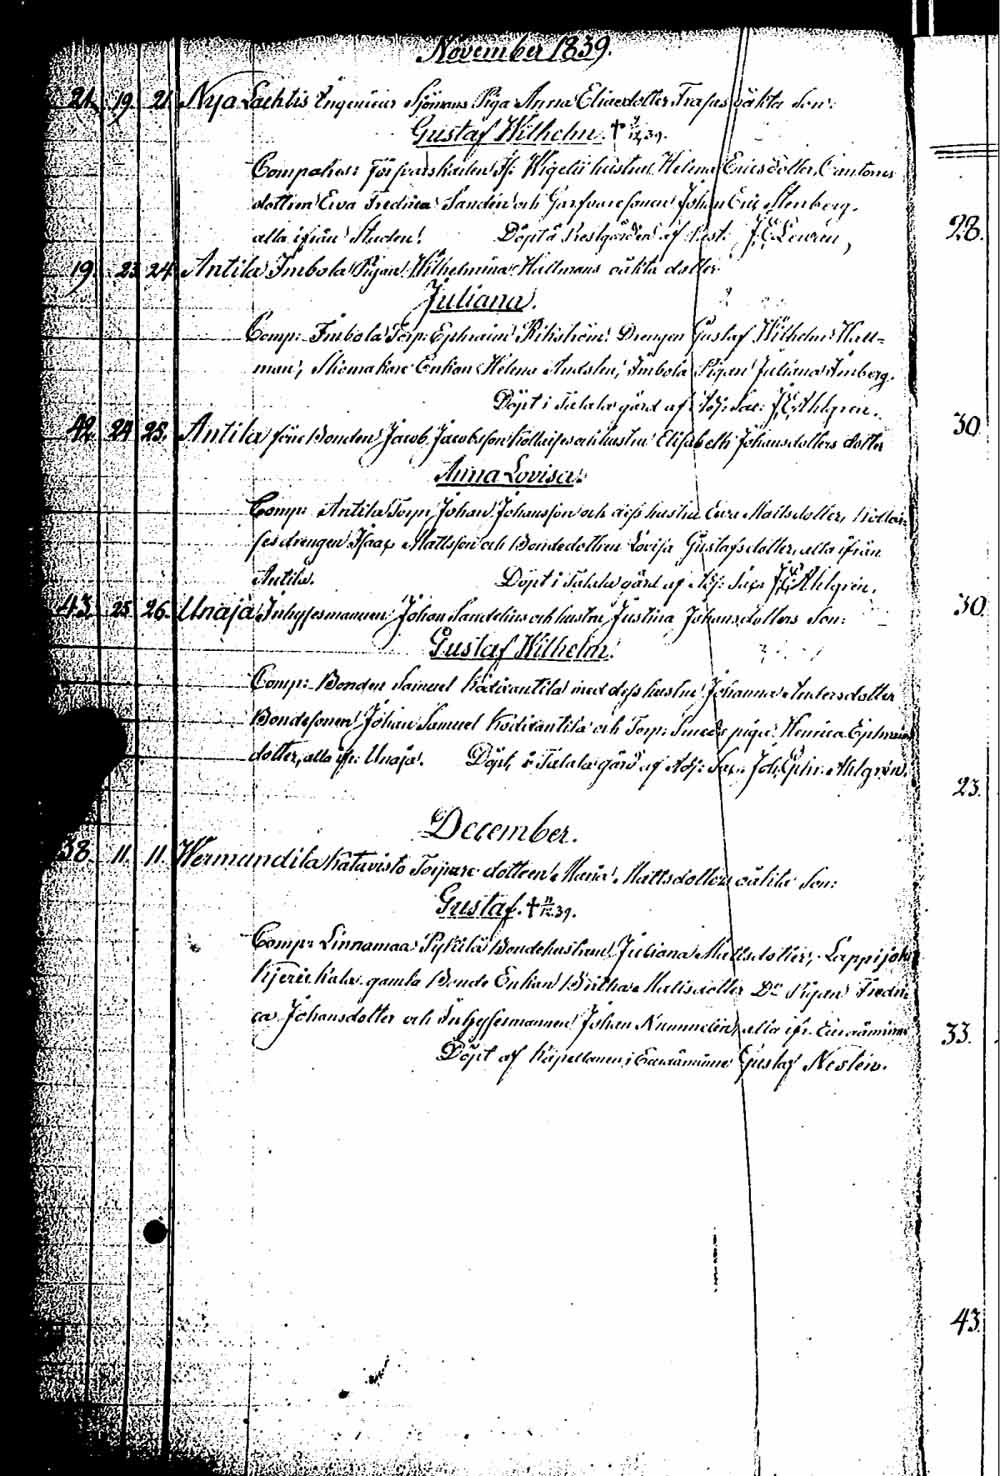 November 1839.
21. 19. 21. Nya Lachtis Ingenieur Sjömans Piga Anna Eliaedotter Trafas oäkta Son:
Gustaf Wilhelm. † 3/12 39.
Comp: Hustru Helena Ericsdotter, Cantors
dottren Eva Fredrica Sandin och Garfvaresonen Johan Eric Stenberg.
alla ifrån Staden. Döpt å Prestgården af Past. J. E. Lewren,
28.
19. 23. 24. Antila Imbola Pigan Wilhelmina Hallmans oäkta dotter
Juliana.
Comp: Imbola Torp: Ephraim Wikström, Drengen Gustaf Wilhelm Hall=
man, Skomakare Enkan Helena Lindsten, Imbola Pigan Juliana Imberg.
Döpt i Talala gård af Adj: Sac: J. E. Ahlgren.
42. 24. 25. Antila förre Bonden Jacob Jacobsson och hustru Elisabeth Johansdotters dotter
30.
Anna Lovisa.
Comp: Antila Torp: Johan Johansson och dess hustru Eva Mattsdotter,
drengen Isaac Mattsson och Bondedottren Lovisa Gustafsdotter, alla ifrån
Antila. Döpt i Talala gård af Adj: Sac: J. E. Ahlgren.
43. 25. 26. Unaja Inhysesmannen Johan Sandelius och hustru Justina Johansdotters Son:
30.
Gustaf Wilhelm.
Comp: Bonden Samuel Kodivantila med dess hustru Johanna Andersdotter
Bondesonen Johan Samuel Kodivantila och Torp: Smeds piga Henrica Ephraims
dotter, alla ifr: Unaja. Döpt i Talala gård af Adj: Sac: Joh. Ephr. Ahlgren.
23.
December.
38. 11. 11. Wermundila Katavisto Torpare dottren Maria Mattsdotters oäkta Son:
Gustaf. † 11/12 39.
Comp: Linnamaa Pyktilä Bondehustrun Juliana Mattsdotter, Lappijoki
gamla Bonde Enkan Birtha Matsdotter Do Pigan Fredri
ca Johansdotter och Inhysesmannen Johan Nummelin, alla ifr. Euraåminne
33.
Döpt af Kapellanen i Euraåminne Gustaf Nestén.
43.